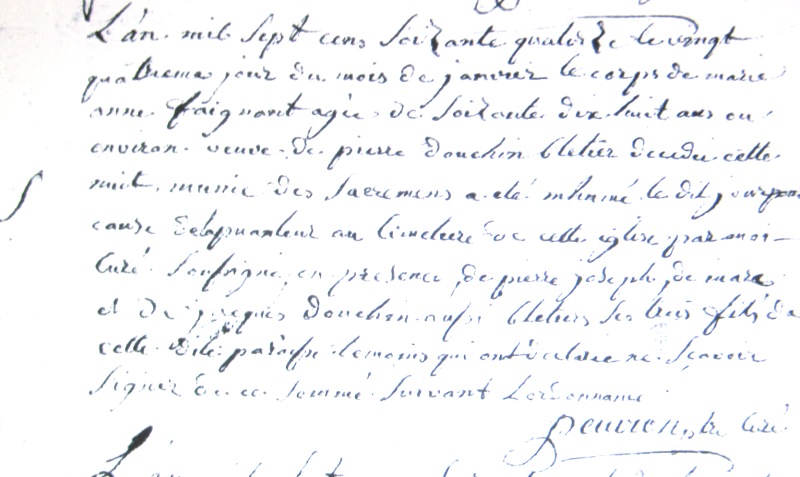 L'an mil sept cens soixante quatorze le vingt
quatrieme jour du mois de janvier le corps de marie
anne faignant agée de soixante dix huit ans ou
environ veuve de pierre Douchin bletier decedee cette
nuit munie des sacremens a eté inhumé le dit jour pour
cause de la puanteur au cimetiere de cette eglise par moi
curé soussigné en presence de pierre joseph de marc
et de jacques Douchin aussi bletiers ses trois fils de
cette dite paroisse temoins qui ont declaré ne scavoir
signer de ce sommé suivant l'ordonnance
curé